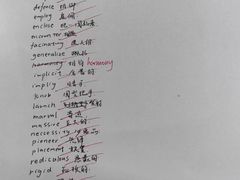 defence 防御
employ 雇佣
enclose
encounter
facinating 迷人的
generalize 概括
harmony harmony
implicit 含蓄的
imply 暗示
knob 门把手
launch
marvel 奇迹
massive 巨大的
neccessity 必需品
pioneer 先锋
placement 放置
rediculous 愚蠢的
rigid